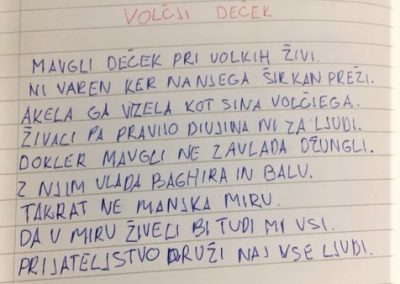 VOLČJI DEČEK
MAVGLI DEČEK PRI VOLKIH ŽIVI.
NI VAREN KER NA NJEGA ŠIR KAN PREŽI.
AKELA GA VZELA KOT SINA VOLČJEGA.
ŽIVALI PA PRAVIJO DIVJINA NI ZA LJUDI.
DOKLER MAVGLI NE ZAVLADA DŽUNGLI.
Z NJIM VLADA BAGHIRA IN BALU.
TAKRAT NE MANJKA MIRU.
DA V MIRU ŽIVELI BI TUDI MI VSI.
PRIJATELJSTVO DRUŽI NAJ VSE LJUDI.